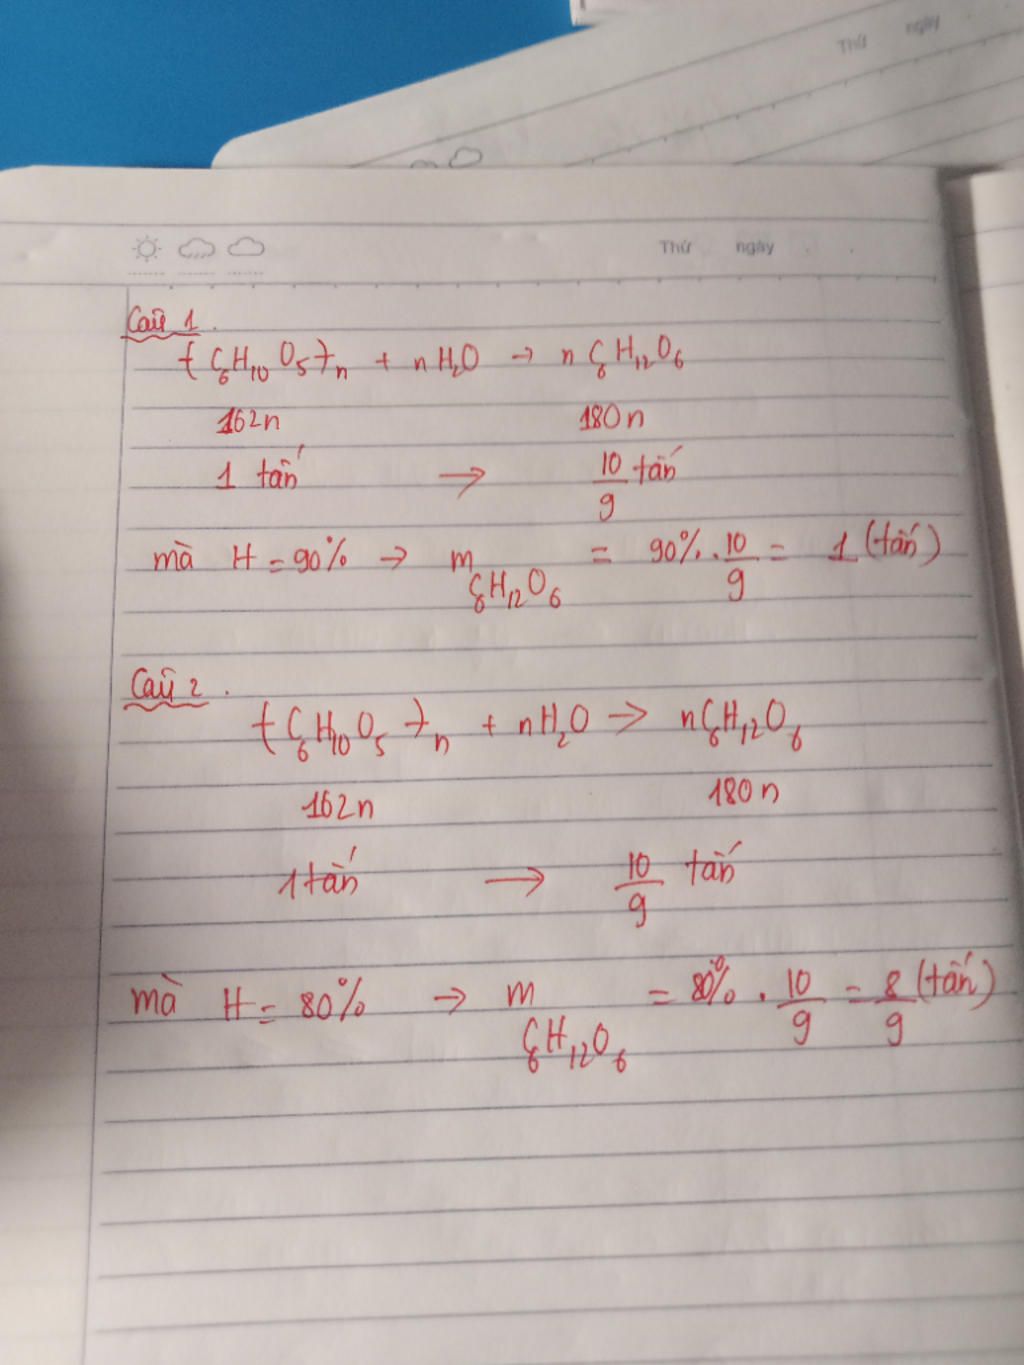 Thứ ngày
Thứ ngày
Câu 1.
(C6H10O5)n + nH2O → nC6H12O6
162n 180n
1 tấn → 10/9 tấn
mà H = 90% → mC6H12O6 = 90% . 10/9 = 1 (tấn)
Câu 2.
(C6H10O5)n + nH2O → nC6H12O6
162n 180n
1 tấn → 10/9 tấn
mà H = 80% → mC6H12O6 = 80% . 10/9 = 8/9 (tấn)